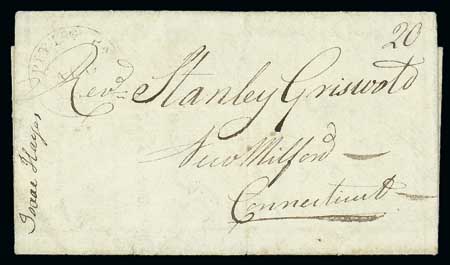 20
Revd. Stanley Griswold
New Milford
Connecticut
Isaac Hayes